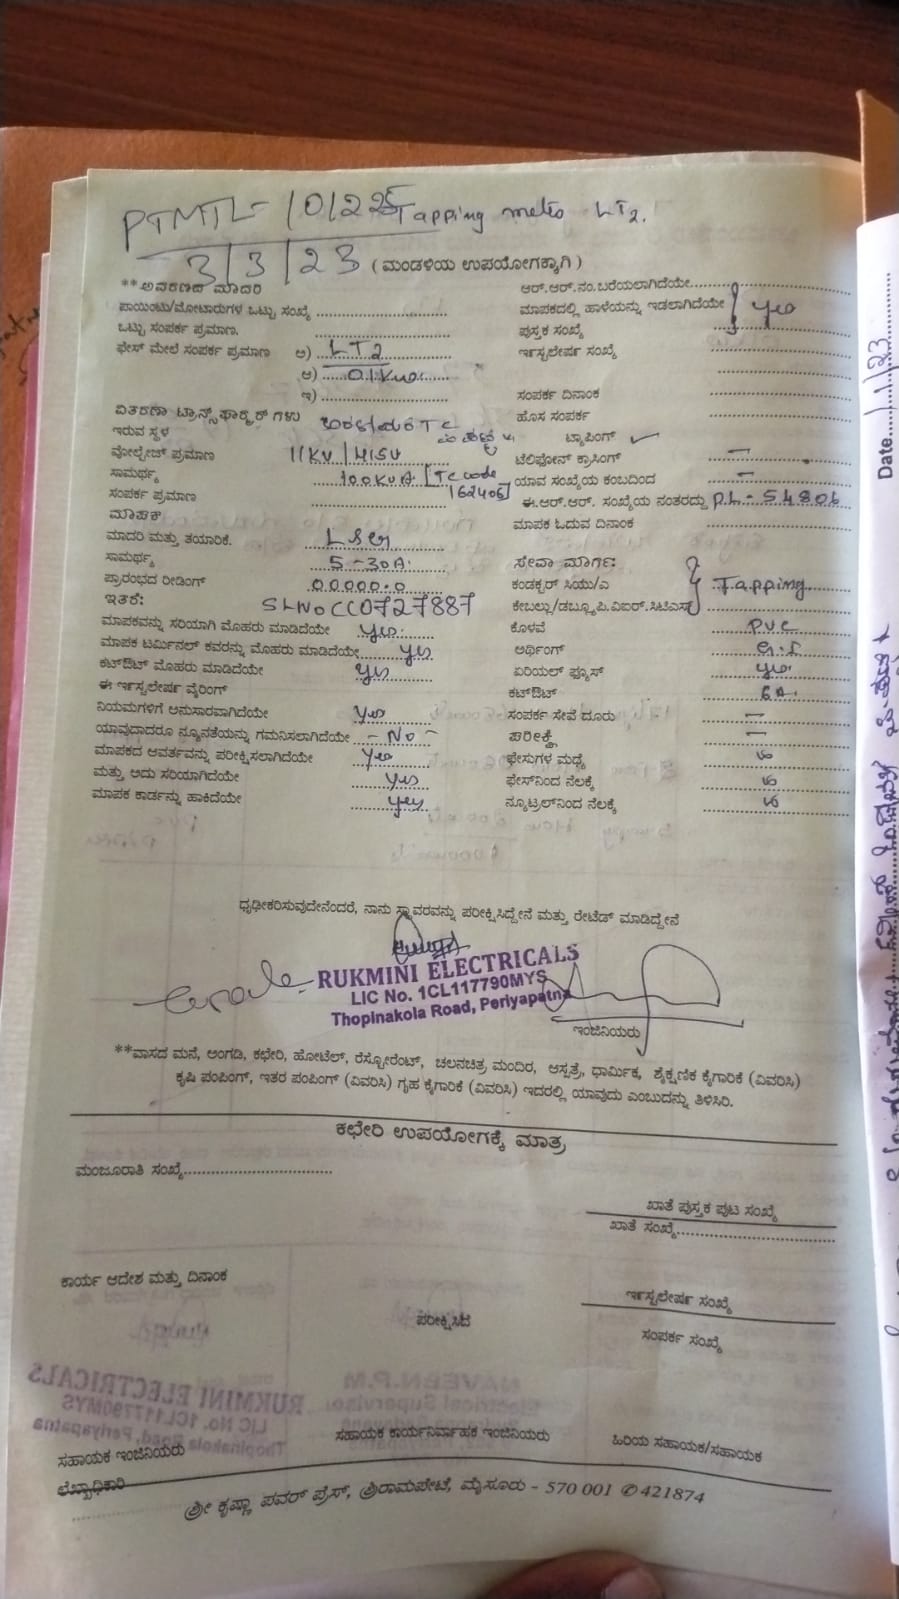 PTMTL- 10225 Tapping metro LT2.
3/3/23 (ಮಂಡಳಿಯ ಉಪಯೋಗಕ್ಕಾಗಿ)
**ಆವರಣದ ಮಾದರಿ
ಪಾಯಿಂಟು/ಮೋಟಾರುಗಳ ಒಟ್ಟು ಸಂಖ್ಯೆ
ಒಟ್ಟು ಸಂಪರ್ಕ ಪ್ರಮಾಣ.
ಫೇಸ್ ಮೇಲೆ ಸಂಪರ್ಕ ಪ್ರಮಾಣ ಅ) LT2
ಆ) 0.1Kw
ಇ)
ವಿತರಣಾ ಟ್ರಾನ್ಸ್‌ಫಾರ್ಮ್ರರ್ ಗಳು
ಇರುವ ಸ್ಥಳ
ವೋಲ್ಟೇಜ್ ಪ್ರಮಾಣ 11KV/415V
ಸಾಮರ್ಥ್ಯ 100KVA [TC code
ಸಂಪರ್ಕ ಪ್ರಮಾಣ 162406]
ಮಾಪಕ
ಮಾದರಿ ಮತ್ತು ತಯಾರಿಕೆ.
ಸಾಮರ್ಥ್ಯ 5-30A.
ಪ್ರಾರಂಭದ ರೀಡಿಂಗ್ 00000.0
ಇತರೆ: SLNo CC0727887
ಮಾಪಕವನ್ನು ಸರಿಯಾಗಿ ಮೊಹರು ಮಾಡಿದೆಯೇ yes
ಮಾಪಕ ಟರ್ಮಿನಲ್ ಕವರನ್ನು ಮೊಹರು ಮಾಡಿದೆಯೇ yes
ಕಟ್‌ಔಟ್ ಮೊಹರು ಮಾಡಿದೆಯೇ yes
ಈ ಇನ್ಸ್ಟಲೇಷನ್ ವೈರಿಂಗ್
ನಿಯಮಗಳಿಗೆ ಅನುಸಾರವಾಗಿದೆಯೇ yes
ಯಾವುದಾದರೂ ನ್ಯೂನತೆಯನ್ನು ಗಮನಿಸಲಾಗಿದೆಯೇ - No -
ಮಾಪಕದ ಆವರ್ತವನ್ನು ಪರೀಕ್ಷಿಸಲಾಗಿದೆಯೇ yes
ಮತ್ತು ಅದು ಸರಿಯಾಗಿದೆಯೇ yes
ಮಾಪಕ ಕಾರ್ಡನ್ನು ಹಾಕಿದೆಯೇ yes
ಆರ್.ಆರ್.ನಂ.ಬರೆಯಲಾಗಿದೆಯೇ
ಮಾಪಕದಲ್ಲಿ ಹಾಳೆಯನ್ನು ಇಡಲಾಗಿದೆಯೇ yes
ಪುಸ್ತಕ ಸಂಖ್ಯೆ
ಇನ್ಸ್ಟಲೇಷನ್ ಸಂಖ್ಯೆ
ಸಂಪರ್ಕ ದಿನಾಂಕ
ಹೊಸ ಸಂಪರ್ಕ
ಟ್ಯಾಪಿಂಗ್ ✓
ಟೆಲಿಫೋನ್ ಕ್ರಾಸಿಂಗ್ -
ಯಾವ ಸಂಖ್ಯೆಯ ಕಂಬದಿಂದ -
ಈ.ಆರ್.ಆರ್. ಸಂಖ್ಯೆಯ ನಂತರದ್ದು PL-54806
ಮಾಪಕ ಓದುವ ದಿನಾಂಕ
ಸೇವಾ ಮಾರ್ಗ:
ಕಂಡಕ್ಟರ್ ಸಿಯು/ಎ Tapping
ಕೇಬಲ್ಲು/ಡಬ್ಲ್ಯೂ.ಪಿ.ಐಆರ್.ಸಿಟಿಎಸ್
ಕೊಳವೆ PVC
ಅರ್ಥಿಂಗ್ G.I
ಏರಿಯಲ್ ಫ್ಯೂಸ್ yes
ಕಟ್‌ಔಟ್ 6A.
ಸಂಪರ್ಕ ಸೇವೆ ದೂರು -
ಪರೀಕ್ಷೆ -
ಫೇಸುಗಳ ಮಧ್ಯೆ
ಫೇಸ್‌ನಿಂದ ನೆಲಕ್ಕೆ
ನ್ಯೂಟ್ರಲ್‌ನಿಂದ ನೆಲಕ್ಕೆ
ಧೃಢೀಕರಿಸುವುದೇನೆಂದರೆ, ನಾನು ಸ್ಥಾವರವನ್ನು ಪರೀಕ್ಷಿಸಿದ್ದೇನೆ ಮತ್ತು ರೇಟೆಡ್ ಮಾಡಿದ್ದೇನೆ
RUKMINI ELECTRICALS
LIC No. 1CL117790MYS
Thopinakola Road, Periyapatna
ಇಂಜಿನಿಯರು
**ವಾಸದ ಮನೆ, ಅಂಗಡಿ, ಕಛೇರಿ, ಹೋಟೆಲ್, ರೆಸ್ಟೋರೆಂಟ್, ಚಲನಚಿತ್ರ ಮಂದಿರ, ಆಸ್ಪತ್ರೆ, ಧಾರ್ಮಿಕ, ಶೈಕ್ಷಣಿಕ ಕೈಗಾರಿಕೆ (ವಿವರಿಸಿ)
ಕೃಷಿ ಪಂಪಿಂಗ್, ಇತರ ಪಂಪಿಂಗ್ (ವಿವರಿಸಿ) ಗೃಹ ಕೈಗಾರಿಕೆ (ವಿವರಿಸಿ) ಇದರಲ್ಲಿ ಯಾವುದು ಎಂಬುದನ್ನು ತಿಳಿಸಿರಿ.
ಕಛೇರಿ ಉಪಯೋಗಕ್ಕೆ ಮಾತ್ರ
ಮಂಜೂರಾತಿ ಸಂಖ್ಯೆ
ಖಾತೆ ಪುಸ್ತಕ ಪುಟ ಸಂಖ್ಯೆ
ಖಾತೆ ಸಂಖ್ಯೆ
ಕಾರ್ಯ ಆದೇಶ ಮತ್ತು ದಿನಾಂಕ
ಇನ್ಸ್ಟಲೇಷನ್ ಸಂಖ್ಯೆ
ಪರೀಕ್ಷಿಸಿದೆ
ಸಂಪರ್ಕ ಸಂಖ್ಯೆ
ಸಹಾಯಕ ಇಂಜಿನಿಯರು ಸಹಾಯಕ ಕಾರ್ಯನಿರ್ವಾಹಕ ಇಂಜಿನಿಯರು ಹಿರಿಯ ಸಹಾಯಕ/ಸಹಾಯಕ
ಲೆಖ್ಖಾಧಿಕಾರಿ
ಶ್ರೀ ಕೃಷ್ಣಾ ಪವರ್ ಪ್ರೆಸ್, ಶ್ರೀರಾಮಪೇಟೆ, ಮೈಸೂರು - 570 001 ✆ 421874
Date 1/23